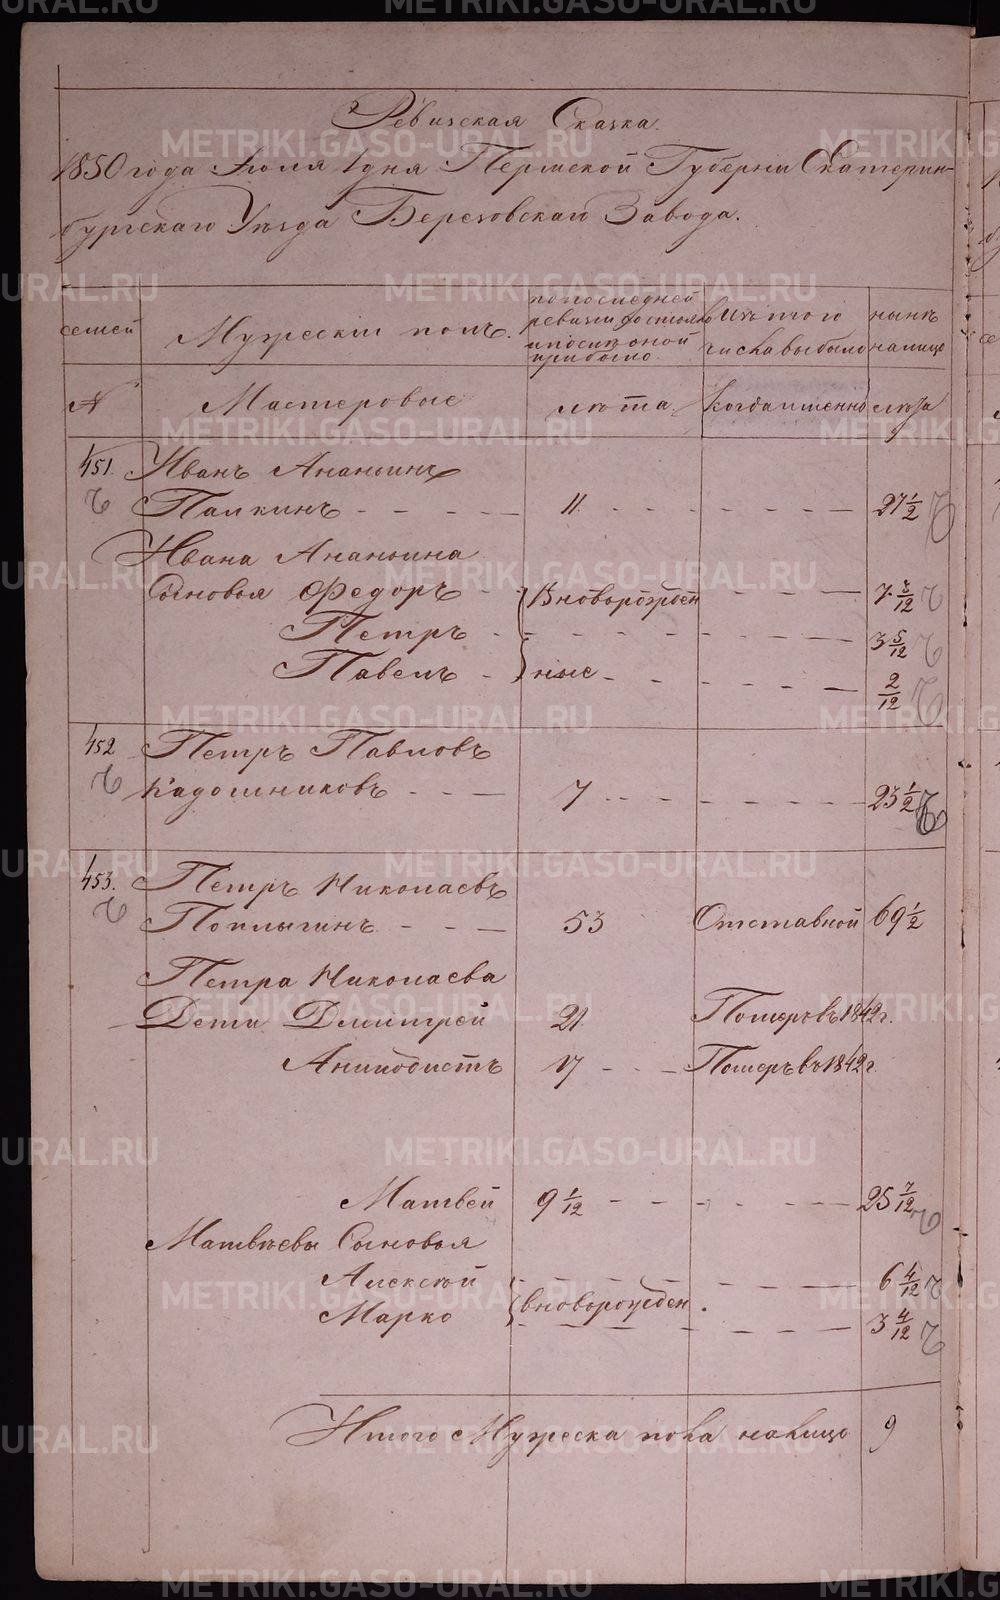 Ревизская Сказка.
1850 года Июля 1 дня Пермской Губернии Екатерин-
бургскаго Уѣзда Березовскаго Завода.
семей
Мужескій полъ.
по последней ревизіи состояло и после оной прибыло
Изъ того числа выбыло
нынѣ налицо
№
Мастеровые
лѣта.
Когда именно
лѣта
451.
Иванъ Ананьинъ
Палкинъ - - - - 11. - - - - - 27 1/2
Ивана Ананьина
Сыновья Федоръ - - Вноворожден - - - 7 3/12
Петръ - - - - - 3 5/12
Павелъ - ные - - - - 2/12
452
Петръ Павловъ
Кадошниковъ - - - 7 - - - - - 23 1/2
453.
Петръ Николаевъ
Поплыгинъ - - - 53 Отставной 69 1/2
Петра Николаева
Дети Дмитрей 21. Померъ въ 1842 г.
Аниподистъ 17 - - - Померъ въ 1842 г.
Матвей 9 1/12 - - - - - 25 7/12
Матвѣевы Сыновья
Алексѣй - - - - - 6 4/12
Марко вноворожден. - - - 3 4/12
Итого Мужеска пола налицо 9
METRIKI.GASO-URAL.RU